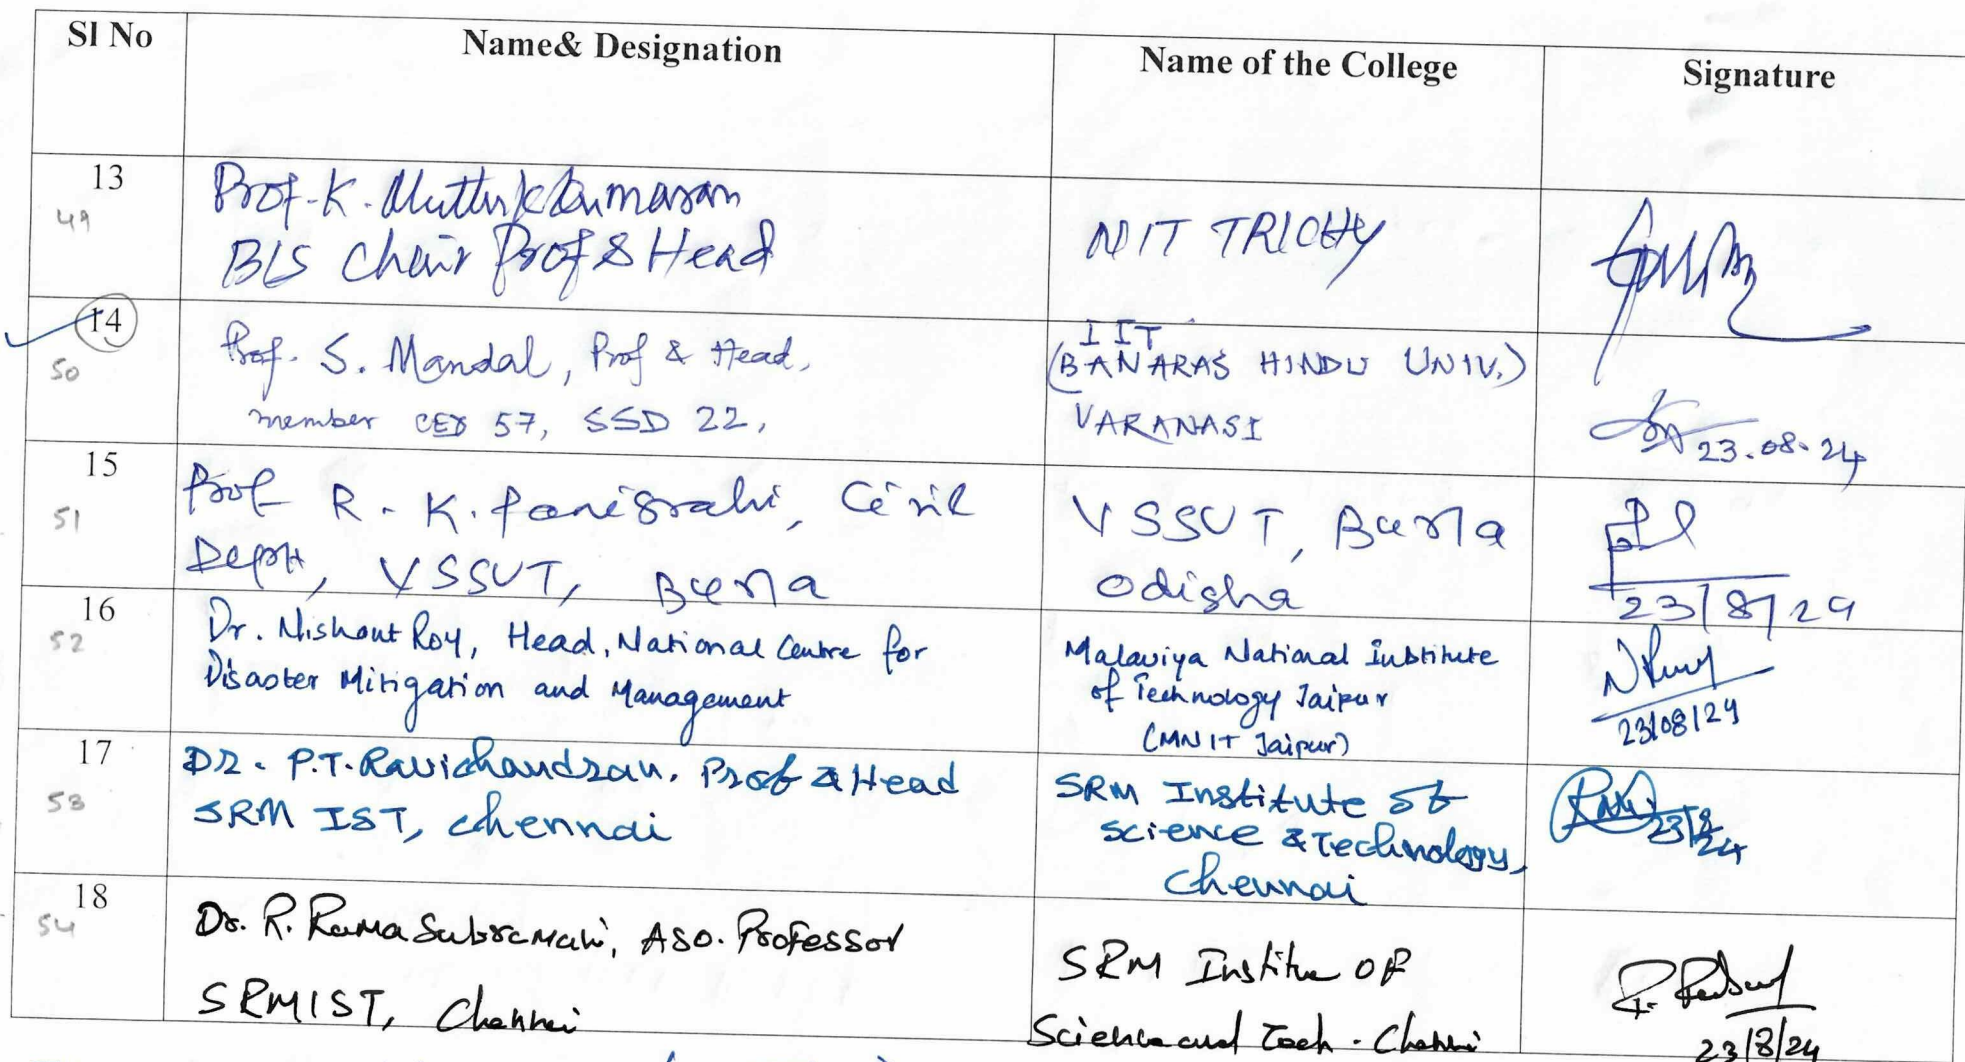 Sl No Name& Designation Name of the College Signature
13
49
Prof. K. Muthukkumaran
BIS Chair Prof & Head
NIT TRICHY
14
50
Prof. S. Mandal, Prof & Head,
member CED 57, SSD 22,
IIT
(BANARAS HINDU UNIV.)
VARANASI
23.08.24
15
51
Prof R. K. Panigrahi, Civil
Deptt, VSSUT, Burla
VSSUT, Burla
Odisha
23/8/24
16
52
Dr. Nishant Roy, Head, National Centre for
Disaster Mitigation and Management
Malaviya National Institute
of Technology Jaipur
(MNIT Jaipur)
23/08/24
17
53
DR. P.T. Ravichandran, Prof & Head
SRM IST, Chennai
SRM Institute of
Science & Technology,
Chennai
23/8/24
18
54
Dr. R. Rama Subramani, Aso. Professor
SRMIST, Chennai
SRM Institue OF
Science and Tech. Chennai
23/8/24